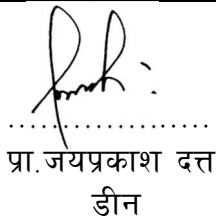 प्रा.जयप्रकाश दत्त
डीन